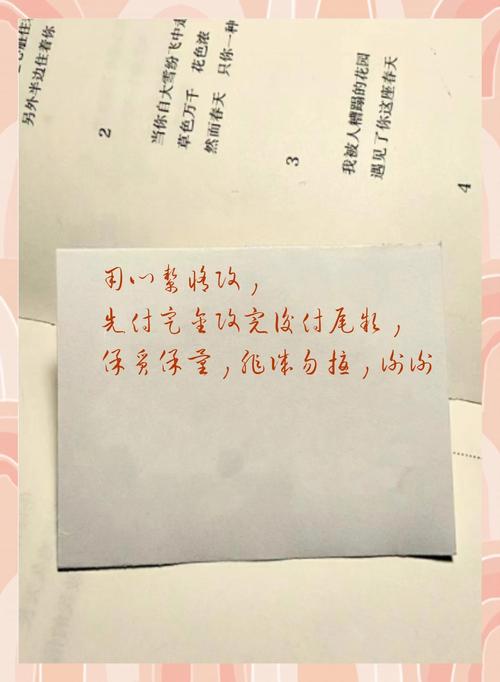 另外半边住着你
2
当你自大雪纷飞中走
草色万千 花色浓
然而春天 只你一种
3
我被人糟蹋的花园
遇见了你这座春天
4
用心修改，
先付定金改完后付尾款，
保质保量，非诚勿扰，谢谢